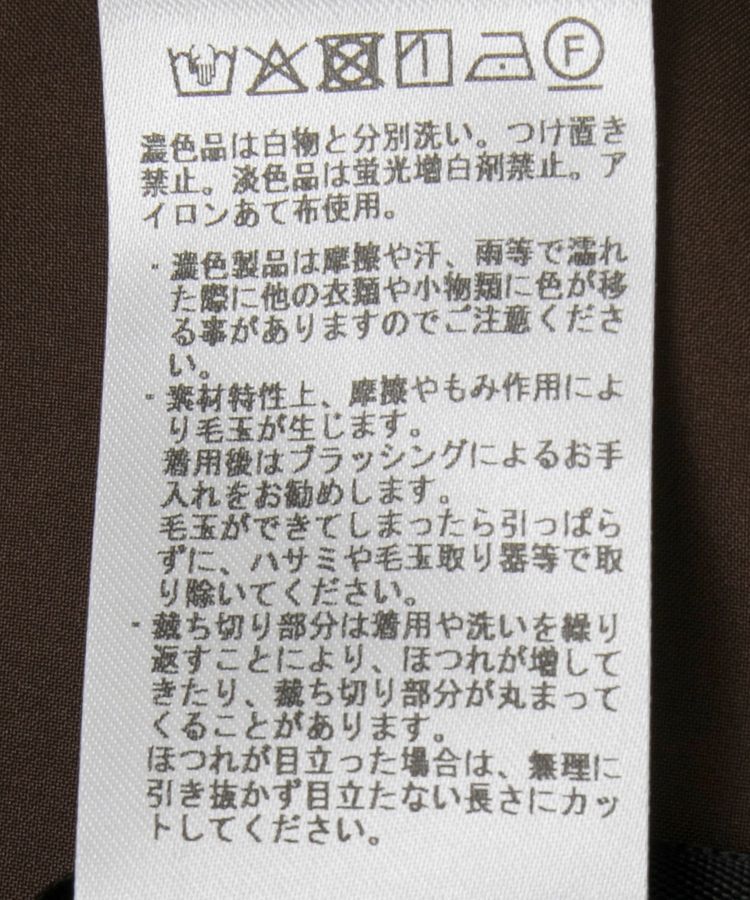 F
濃色品は白物と分別洗い。つけ置き
禁止。淡色品は蛍光増白剤禁止。ア
イロンあて布使用。
・濃色製品は摩擦や汗、雨等で濡れ
た際に他の衣類や小物類に色が移
る事がありますのでご注意くださ
い。
・素材特性上、摩擦やもみ作用によ
り毛玉が生じます。
着用後はブラッシングによるお手
入れをお勧めします。
毛玉ができてしまったら引っぱら
ずに、ハサミや毛玉取り器等で取
り除いてください。
・裁ち切り部分は着用や洗いを繰り
返すことにより、ほつれが増して
きたり、裁ち切り部分が丸まって
くることがあります。
ほつれが目立った場合は、無理に
引き抜かず目立たない長さにカッ
トしてください。